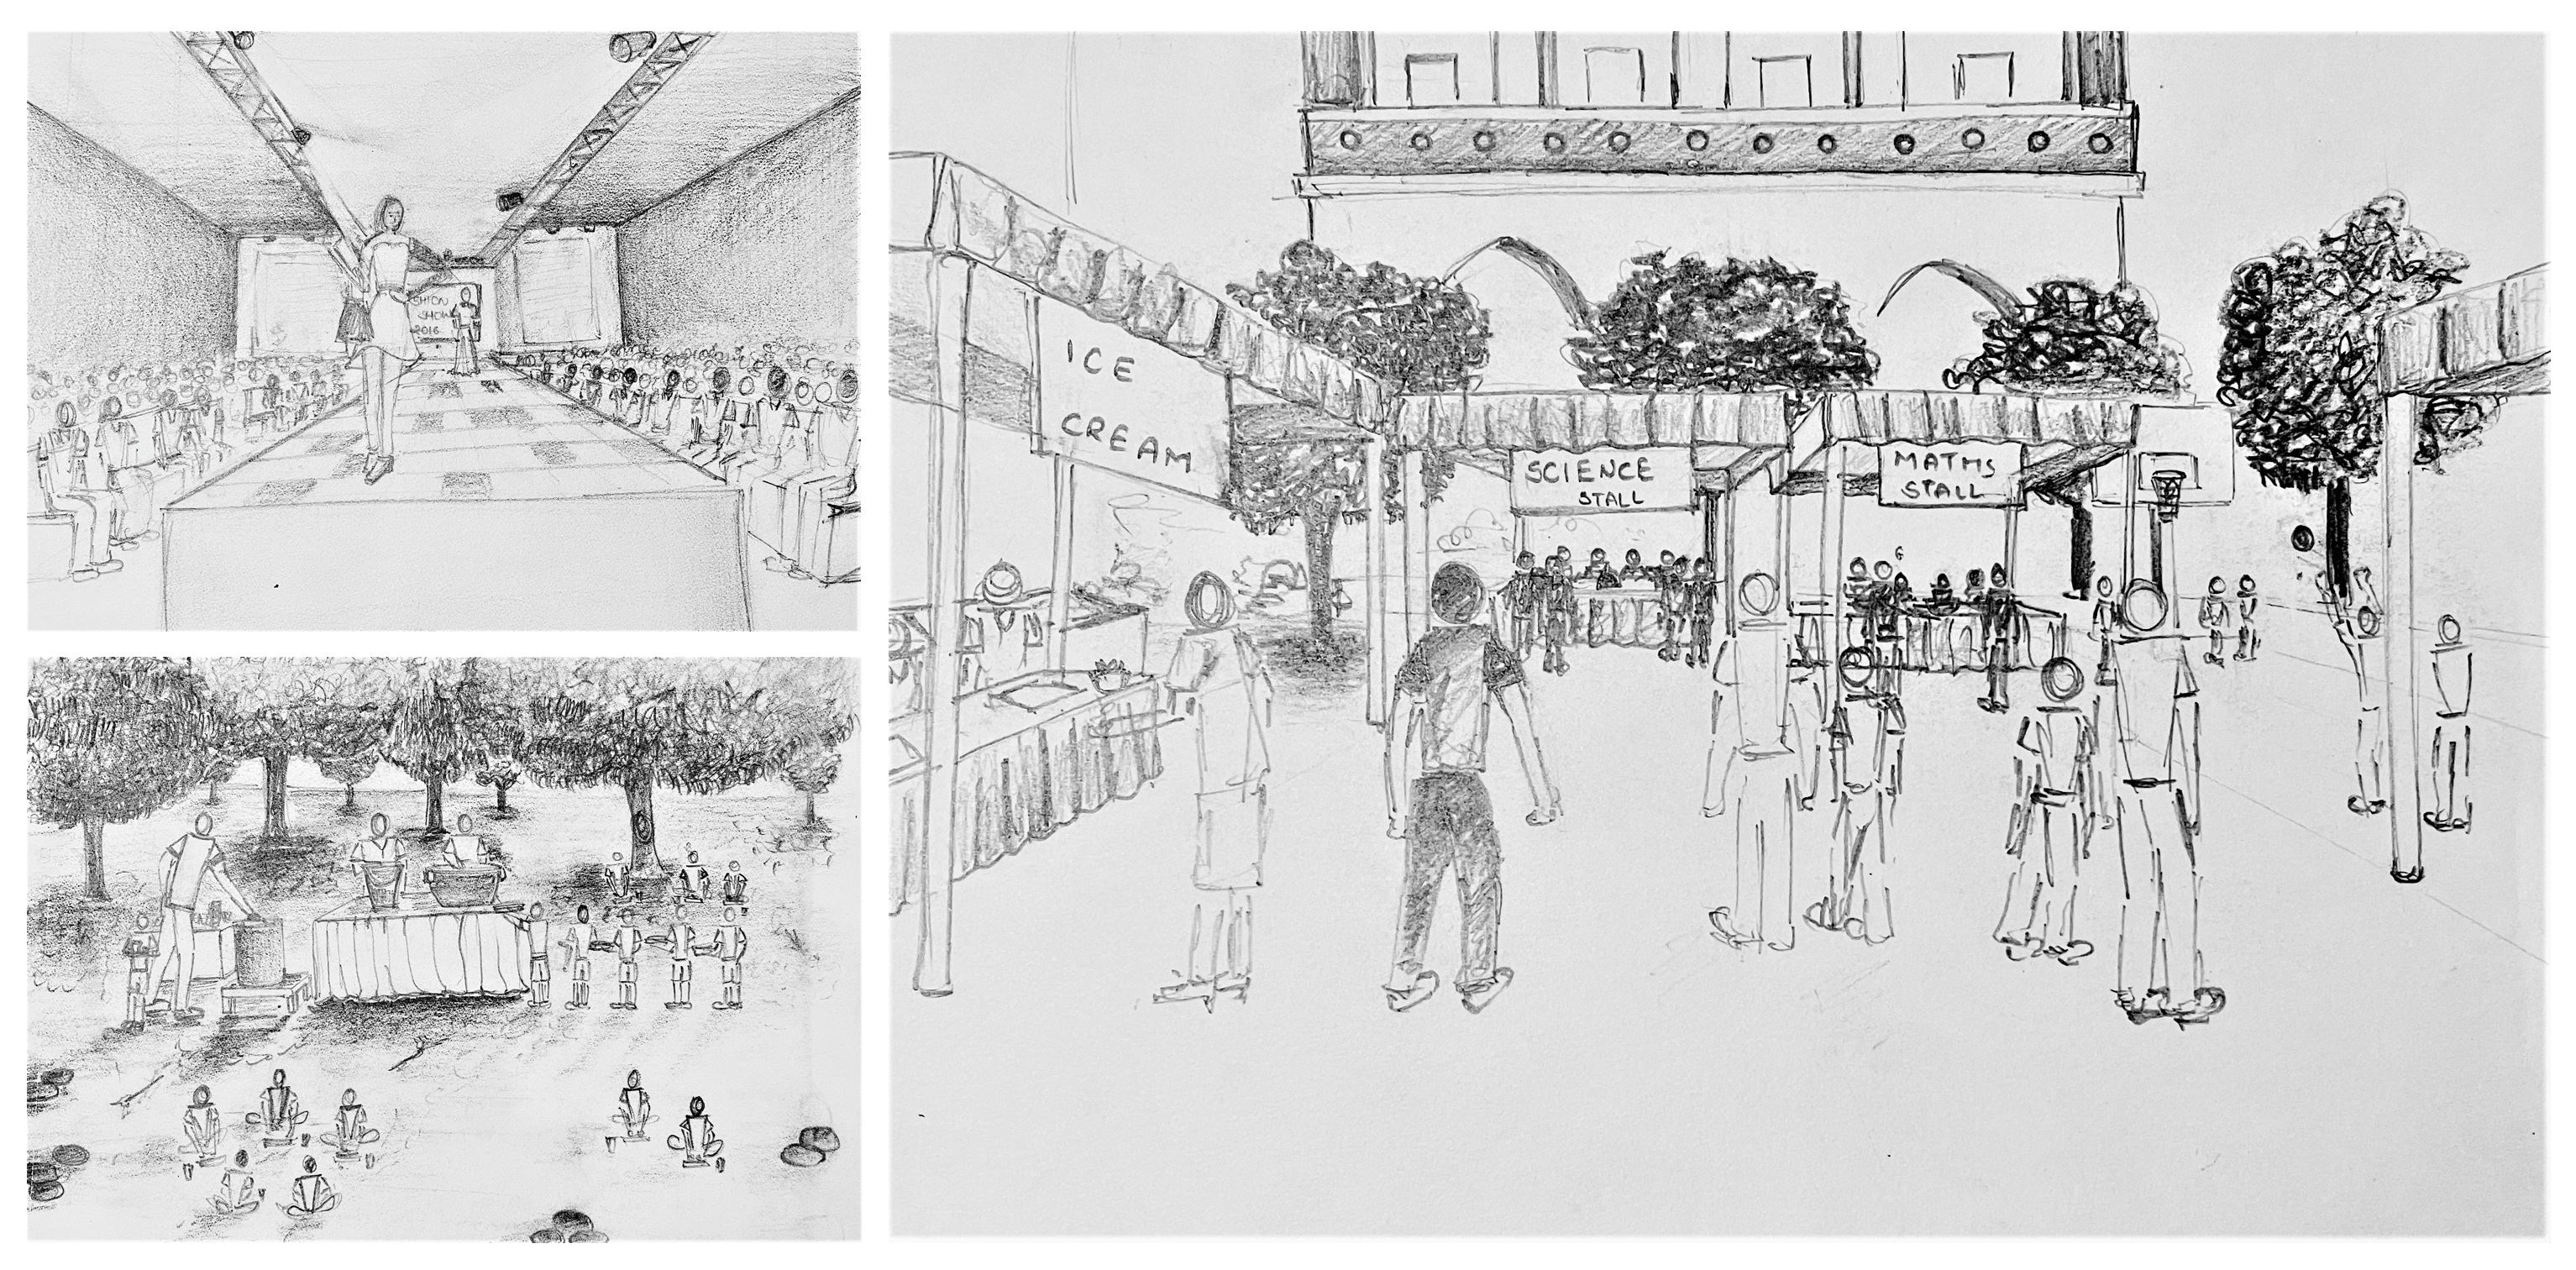 SHION
SHOW
2016
ICE
CREAM
SCIENCE
STALL
MATHS
STALL